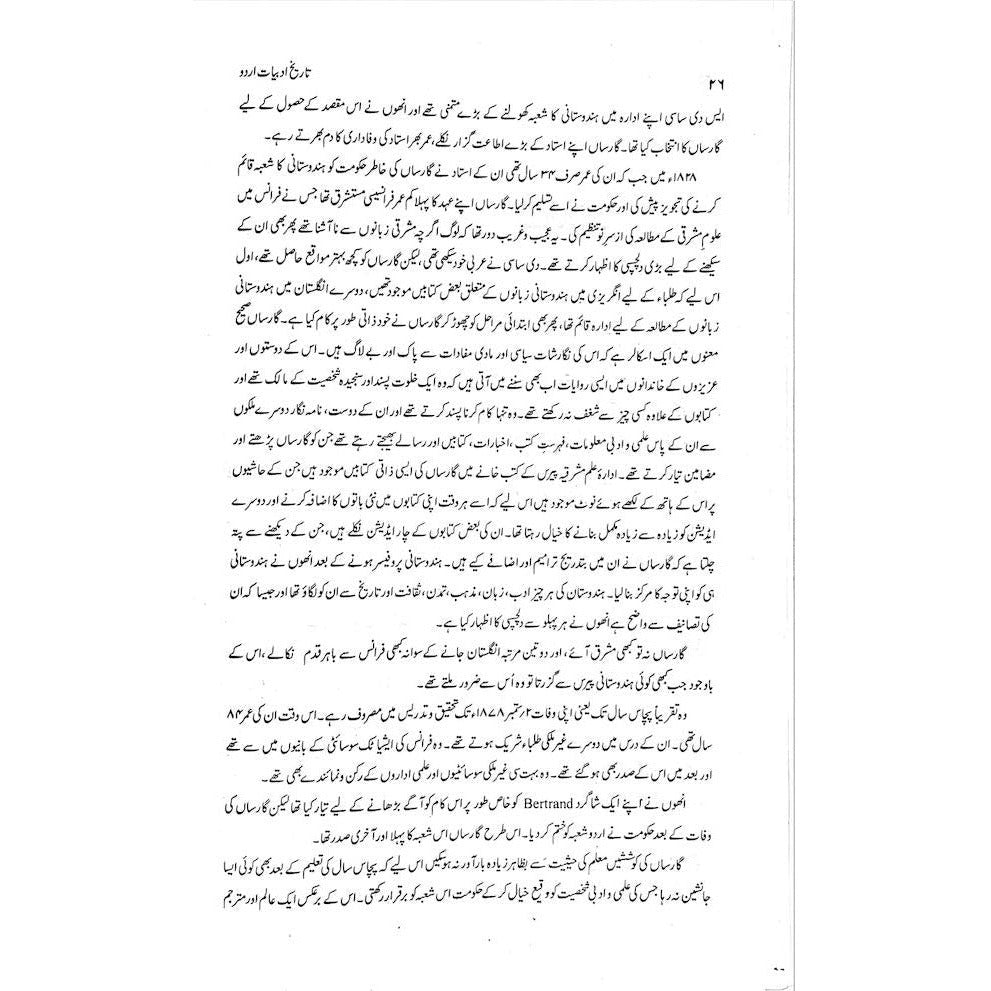 ۲۶
تاریخ ادبیات اردو
ایس دی ساسی اپنے ادارہ میں ہندوستانی کا شعبہ کھولنے کے بڑے متمنی تھے اور انھوں نے اس مقصد کے حصول کے لیے
گارساں کا انتخاب کیا تھا۔ گارساں اپنے استاد کے بڑے اطاعت گزار نکلے، عمر بھر استاد کی وفاداری کا دم بھرتے رہے۔
۱۸۲۸ء میں جب کہ ان کی عمر صرف ۳۴ سال تھی ان کے استاد نے گارساں کی خاطر حکومت کو ہندوستانی کا شعبہ قائم
کرنے کی تجویز پیش کی اور حکومت نے اسے تسلیم کر لیا۔ گارساں اپنے عہد کا پہلا کم عمر فرانسیسی مستشرق تھا جس نے فرانس میں
علومِ مشرقی کے مطالعہ کی از سرِ نو تنظیم کی۔ یہ عجیب و غریب دور تھا کہ لوگ اگرچہ مشرقی زبانوں سے نا آشنا تھے پھر بھی ان کے
سیکھنے کے لیے بڑی دلچسپی کا اظہار کرتے تھے۔ دی ساسی نے عربی خود سیکھی تھی، لیکن گارساں کو کچھ بہتر مواقع حاصل تھے، اول
اس لیے کہ طلباء کے لیے انگریزی میں ہندوستانی زبانوں کے متعلق بعض کتابیں موجود تھیں، دوسرے انگلستان میں ہندوستانی
زبانوں کے مطالعہ کے لیے ادارہ قائم تھا، پھر بھی ابتدائی مراحل کو چھوڑ کر گارساں نے خود ذاتی طور پر کام کیا ہے۔ گارساں صحیح
معنوں میں ایک اسکالر ہے کہ اس کی نگارشات سیاسی اور مادی مفادات سے پاک اور بے لاگ ہیں۔ اس کے دوستوں اور
عزیزوں کے خاندانوں میں ایسی روایات اب بھی سننے میں آتی ہیں کہ وہ ایک خلوت پسند اور سنجیدہ شخصیت کے مالک تھے اور
کتابوں کے علاوہ کسی چیز سے شغف نہ رکھتے تھے۔ وہ تنہا کام کرنا پسند کرتے تھے اور ان کے دوست، نامہ نگار دوسرے ملکوں
سے ان کے پاس علمی و ادبی معلومات، فہرستِ کتب، اخبارات، کتابیں اور رسالے بھیجتے رہتے تھے جن کو گارساں پڑھتے اور
مضامین تیار کرتے تھے۔ ادارۂ علمِ مشرقیہ پیرس کے کتب خانے میں گارساں کی ایسی ذاتی کتابیں موجود ہیں جن کے حاشیوں
پر اس کے ہاتھ کے لکھے ہوئے نوٹ موجود ہیں اس لیے کہ اسے ہر وقت اپنی کتابوں میں نئی باتوں کا اضافہ کرنے اور دوسرے
ایڈیشن کو زیادہ سے زیادہ مکمل بنانے کا خیال رہتا تھا۔ ان کی بعض کتابوں کے چار ایڈیشن نکلے ہیں، جن کے دیکھنے سے پتہ
چلتا ہے کہ گارساں نے ان میں بتدریج ترامیم اور اضافے کیے ہیں۔ ہندوستانی پروفیسر ہونے کے بعد انھوں نے ہندوستانی
ہی کو اپنی توجہ کا مرکز بنا لیا۔ ہندوستان کی ہر چیز ادب، زبان، مذہب، تمدن، ثقافت اور تاریخ سے ان کو لگاؤ تھا اور جیسا کہ ان
کی تصانیف سے واضح ہے انھوں نے ہر پہلو سے دلچسپی کا اظہار کیا ہے۔
گارساں نہ تو کبھی مشرق آئے، اور دو تین مرتبہ انگلستان جانے کے سوا نہ کبھی فرانس سے باہر قدم نکالے، اس کے
باوجود جب کبھی کوئی ہندوستانی پیرس سے گزرتا تو وہ اُس سے ضرور ملتے تھے۔
وہ تقریباً پچاس سال تک یعنی اپنی وفات ۲/ستمبر ۱۸۷۸ء تک تحقیق و تدریس میں مصروف رہے۔ اس وقت ان کی عمر ۸۴
سال تھی۔ ان کے درس میں دوسرے غیر ملکی طلباء شریک ہوتے تھے۔ وہ فرانس کی ایشیاٹک سوسائٹی کے بانیوں میں سے تھے
اور بعد میں اس کے صدر بھی ہو گئے تھے۔ وہ بہت سی غیر ملکی سوسائٹیوں اور علمی اداروں کے رکن و نمائندے بھی تھے۔
انھوں نے اپنے ایک شاگرد Bertrand کو خاص طور پر اس کام کو آگے بڑھانے کے لیے تیار کیا تھا لیکن گارساں کی
وفات کے بعد حکومت نے اردو شعبہ کو ختم کر دیا۔ اس طرح گارساں اس شعبہ کا پہلا اور آخری صدر تھا۔
گارساں کی کوششیں معلم کی حیثیت سے بظاہر زیادہ بار آور نہ ہو سکیں اس لیے کہ پچاس سال کی تعلیم کے بعد بھی کوئی ایسا
جانشین نہ رہا جس کی علمی و ادبی شخصیت کو وقیع خیال کر کے حکومت اس شعبہ کو برقرار رکھتی۔ اس کے برعکس ایک عالم اور مترجم